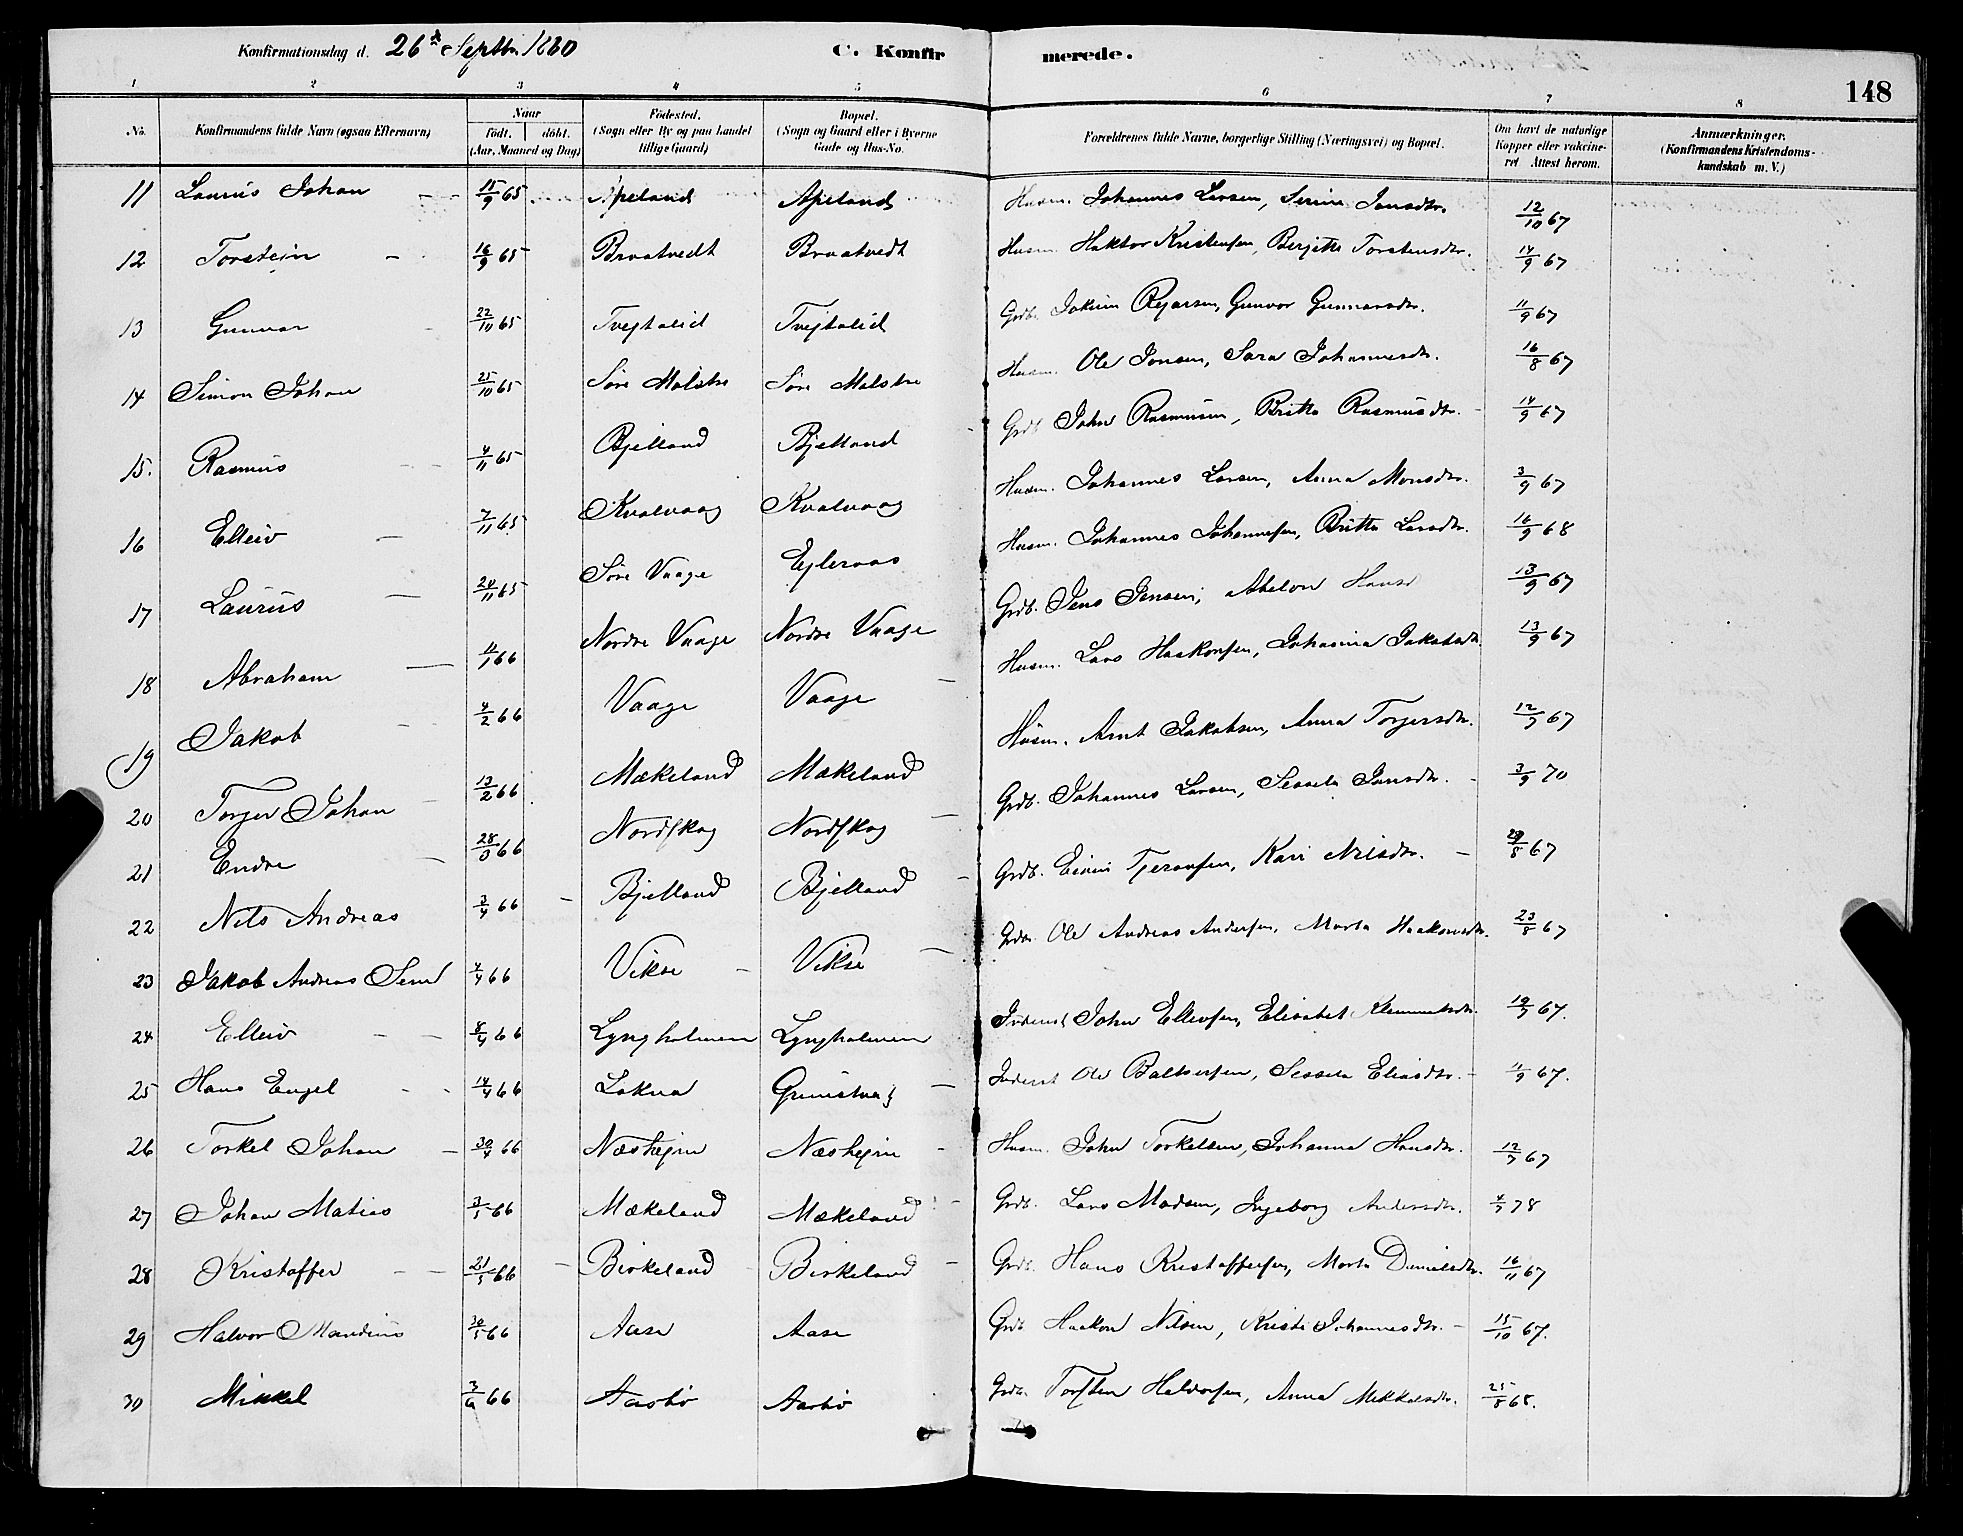 Konfirmationsdag d. 26de Septbr. 1880 C. Konfirmerede. 148
1 2 3 4 5 6 7 8
No. Konfirmandens fulde Navn (ogsaa Efternavn) Naar födt. döbt. (Aar, Maaned og Dag) Födested. (Sogn eller By og paa Landet tillige Gaard) Bopæl. (Sogn og Gaard eller i Byerne Gade og Hus-No. Forældrenes fulde Navne, borgerlige Stilling (Næringsvei) og Bopæl. Om havt de naturlige Kopper eller vakcineret. Attest herom. Anmærkninger. (Konfirmandens Kristendomskundskab m. V.)
11 Laurus Johan 15/9 65 Apeland Apeland Husm. Johannes Larsen, Serine Jonsdtr. 12/10 67
12 Torstein 16/9 65 Braatvedt Braatvedt Husm. Haktor Kristensen, Berjitte Torstensdtr. 14/9 67
13 Gunnar 22/10 65 Tvejtalid Tvejtalid Grdb. Jokum Rejarsen, Gunvor Gunnarsdtr. 11/9 67
14 Simon Johan 25/10 65 Söre Molstre Söre Molstre Husm. Ole Jonsen, Sara Johannesdtr. 16/8 67
15. Rasmus 4/11 65 Bjelland Bjelland Grdb. John Rasmusen, Britte Rasmusdtr. 14/9 67
16 Elleiv 7/11 65 Kvalvaag Kvalvaag Husm. Johannes Larsen, Anna Monsdtr. 3/9 67
17 Laurus 24/11 65 Söre Vaage Ejleraas Husm. Johannes Johannesen, Britte Larsdtr. 16/9 68
18 Abraham 11/1 66 Nordre Vaage Nordre Vaage Grdb. Jens Jensen, Abelone Hansd 13/9 67
19 Jakob 4/2 66 Vaage Vaage Husm. Lars Haakonsen, Johanna Jakobsdtr. 13/9 67
20 Torger Johan 13/2 66 Mækeland Mækeland Husm. Arnt Jakobsen, Anna Torgersdtr. 12/9 67
21 Endre 28/ 66 Nordskog Nordskog Grdb. Johannes Larsen, Sessela Jonsdtr. 3/9 70
22 Nils Andreas 3/4 66 Bjelland Bjelland Grdb. Tjeransen, Kari Nilsdtr. 29/8 67
23 Jakob Andreas 4/4 66 Vikse Vikse Grdb. Ole Andreas Andersen, Marta Haakonsdtr. 23/8 67
24 Elleiv 8/4 66 Lyngholmen Lyngholmen Inderst John Ellevsen, Elisabet Klemmetsdtr. 19/9 67.
25 Hans Engel 14/4 66 Lokna Inderst Ole Baltsersen, Sessela Eliasdtr. 11/9 67.
26 Torkel Johan 30/4 66 Næshejm Næshejm Husm. John Torkelsen, Johanna Hansdtr. 12/9 67
27 Johan Matias 3/5 66 Mækeland Mækeland Grdb. Lars Madsen, Ingeborg Andersdtr. 4/9 78
28 Kristoffer 21/5 66 Birkeland Birkeland Grdb. Hans Kristoffersen, Marta Danielsdtr. 16/11 67
29 Halvor Mandius 30/5 66 Aase Aase Grdb. Haakon Nilsen, Kristi Johannesdtr. 15/10 67.
30 Mikkel 3/6 66 Aasbö Aasbö Grdb. Torsten Halvorsen, Anna Mikkelsdtr. 25/8 68.